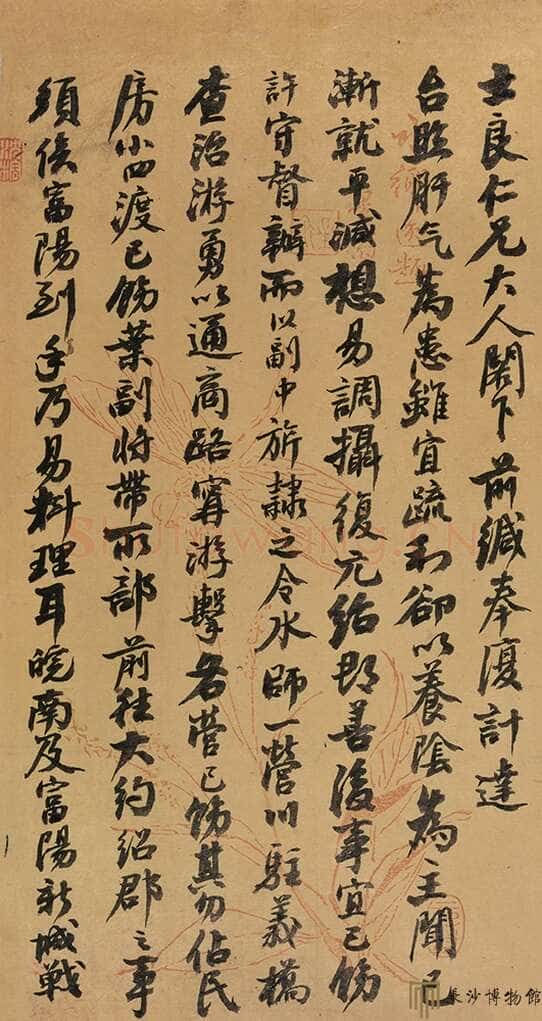 士良仁兄大人閣下前緘奉復計達
台照肝气為患雖宜疏利卻以養陰為主聞已
漸就平減想易調攝復元紹郡善後事宜已飭
許守督辦而以副中旂隸之令水師一營川駐義橋
查治游勇以通商路甯游擊各營已飭其勿佔民
房小四渡已飭葉副將帶所部前往大約紹郡之事
須俟富陽到手乃易料理耳皖南及富陽新城戰
長沙博物館